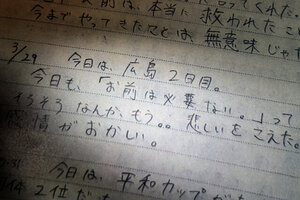 前は、本当に救われたこ
今までやってきたことは、無意味じゃ
3/29 今日は、広島2日目。
今日も、「お前は必要ない。」って
そろそろなんか、もう。。悲しいをこえた。
感情がおかしい。
今日は、平和カップが
2位だ